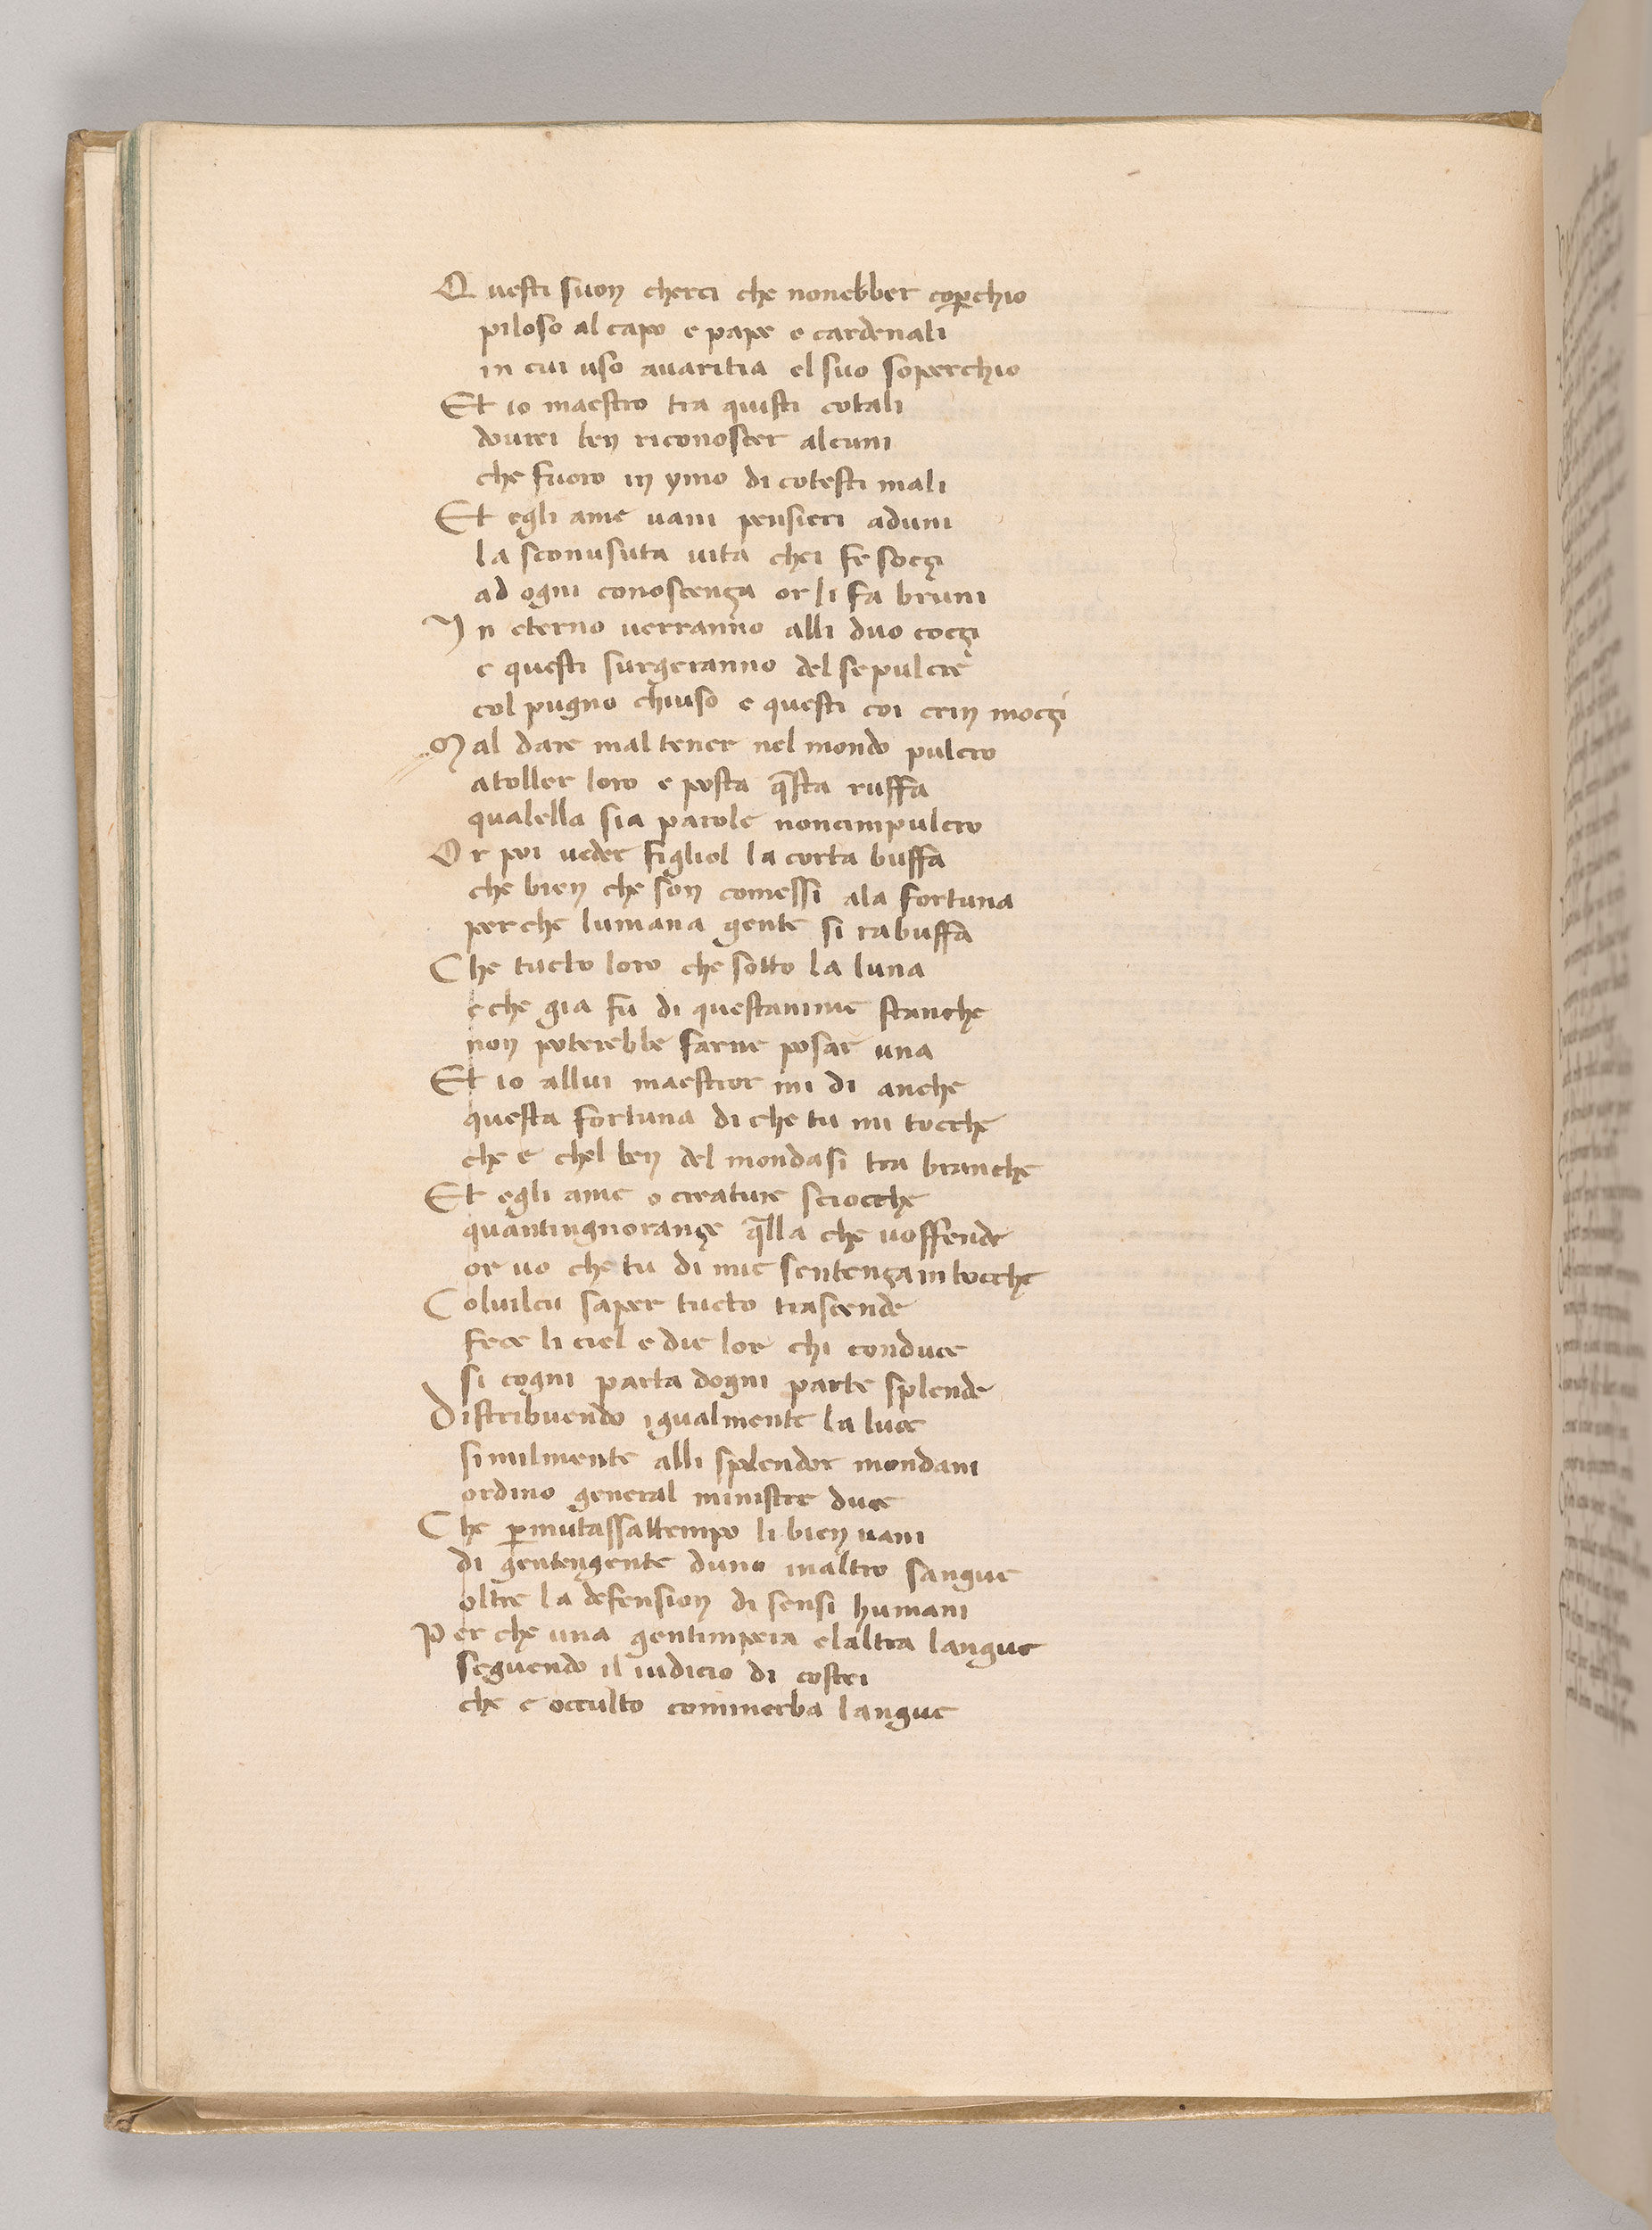 Questi suon cherci che nonebber coꝑchio
piloso al capo e pape e cardenali
in cui uso auaritia el suo soperchio
Et io maestro tra quisti cotali
dourei ben riconoscer alcuni
che fuoro in ymo di cotesti mali
Et egli ame uani pensieri aduni
la sconusuta uita chei fe soczi
ad ogni conoscenza or li fa bruni
In eterno uerranno alli duo coczi
e questi surgeranno del sepulcre
col pugno chiuso e questi coi crin moczi
Mal dare mal tener nel mondo pulcro
atoller loro e posta q̄sta ruffa
qualella sia parole noncimpulcro
Or poi ueder figliol la corta buffa
che bien che son comessi ala fortuna
perche lumana gente si rabuffa
Che tucto loro che sotto la luna
e che gia fu di questanime stanche
non poterebbe farne posar una
Et io allui maestror mi di anche
questa fortuna di che tu mi tocche
che e chel ben del mondasi tra branche
Et egli ame o creature sciocche
quantingnoranze q̄lla che uoffende
or uo che tu di mie sentenzam bocche
Coluilcu saper tucto trascende
fece li ciel e die lor chi conduce
si cogni parta dogni parte splende
Distribuendo igualmente la luce
similmente alli splendor mondani
ordino general ministre duce
Che ꝑmutassaltempo li bien uani
di gentengente duno inaltro sangue
oltre la defension di sensi humani
Perche una gentimpera elaltra langue
seguendo il iudicio di costei
che e occulto comnierba langue